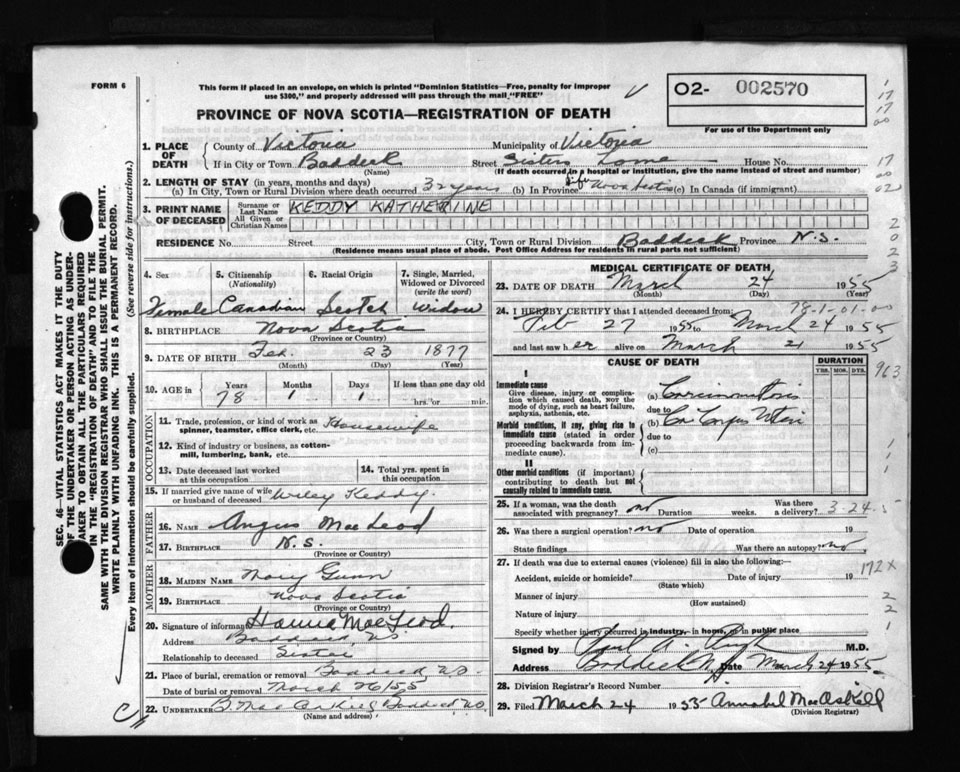 FORM 6
This form if placed in an envelope, on which is printed "Dominion Statistics—Free, penalty for improper
use $300," and properly addressed will pass through the mail "FREE"
PROVINCE OF NOVA SCOTIA—REGISTRATION OF DEATH
O2- 002570
For use of the Department only
1. PLACE OF DEATH
County of Victoria Municipality of Victoria
If in City or Town Baddeck Street Sisters House No.
(Name) (If death occurred in a hospital or institution, give the name instead of street and number)
2. LENGTH OF STAY (in years, months and days)
(a) In City, Town or Rural Division where death occurred 3 years (b) In Province Nova Scotia (c) In Canada (if immigrant)
3. PRINT NAME OF DECEASED
Surname or Last Name KEDDY KATHERINE
All Given or Christian Names
RESIDENCE No. Street City, Town or Rural Division Baddeck Province N.S.
(Residence means usual place of abode. Post Office Address for residents in rural parts not sufficient)
4. Sex Female
5. Citizenship (Nationality) Canadian
6. Racial Origin Scotch
7. Single, Married, Widowed or Divorced (write the word) Widow
8. BIRTHPLACE Nova Scotia
(Province or Country)
9. DATE OF BIRTH Feb. 23 1877
(Month) (Day) (Year)
10. AGE in Years 78 Months 1 Days 1 If less than one day old hrs. or min.
OCCUPATION
11. Trade, profession, or kind of work as spinner, teamster, office clerk, etc. Housewife
12. Kind of industry or business, as cotton-mill, lumbering, bank, etc.
13. Date deceased last worked at this occupation
14. Total yrs. spent in this occupation
15. If married give name of wife or husband of deceased Wiley Keddy.
FATHER
16. NAME Angus MacLeod
17. BIRTHPLACE N.S.
(Province or Country)
MOTHER
18. MAIDEN NAME Mary Gunn
19. BIRTHPLACE Nova Scotia
(Province or Country)
20. Signature of informant Hannie MacLeod.
Address Baddeck NS
Relationship to deceased Sister
21. Place of burial, cremation or removal Baddeck NS
Date of burial or removal March 26/55
22. UNDERTAKER Baddeck NS
(Name and address)
MEDICAL CERTIFICATE OF DEATH
23. DATE OF DEATH March 24 1955
(Month) (Day) (Year)
24. I HEREBY CERTIFY that I attended deceased from: 78-1-01-00
Feb 27 1955 to March 24 1955
and last saw her alive on March 21 1955
CAUSE OF DEATH
DURATION
YRS. MOS. DYS.
963
I
Immediate cause
Give disease, injury or complication which caused death, NOT the mode of dying, such as heart failure, asphyxia, asthenia, etc.
(a)
due to
Morbid conditions, if any, giving rise to immediate cause (stated in order proceeding backwards from immediate cause).
(b) Ca Corpus Uteri
due to
(c)
II
Other morbid conditions (if important) contributing to death but not causally related to immediate cause.
25. If a woman, was the death associated with pregnancy? no Duration weeks. Was there a delivery? 3-24-5
26. Was there a surgical operation? no Date of operation 19
State findings Was there an autopsy? no
27. If death was due to external causes (violence) fill in also the following:—
172X
Accident, suicide or homicide? Date of injury 19
(State which)
Manner of injury
(How sustained)
Nature of injury
Specify whether injury occurred in industry, in home, or in public place
Signed by M.D.
Address Baddeck NS Date March 24 1955
28. Division Registrar's Record Number
29. Filed March 24 1955 Annabel MacAskill
(Division Registrar)
SEC. 46—VITAL STATISTICS ACT MAKES IT THE DUTY
OF THE UNDERTAKER OR PERSON ACTING AS UNDER-
TAKER TO OBTAIN ALL THE PARTICULARS REQUIRED
IN THE "REGISTRATION OF DEATH" AND TO FILE THE
SAME WITH THE DIVISION REGISTRAR WHO SHALL ISSUE THE BURIAL PERMIT.
WRITE PLAINLY WITH UNFADING INK. THIS IS A PERMANENT RECORD.
Every item of information should be carefully supplied. (See reverse side for instructions.)